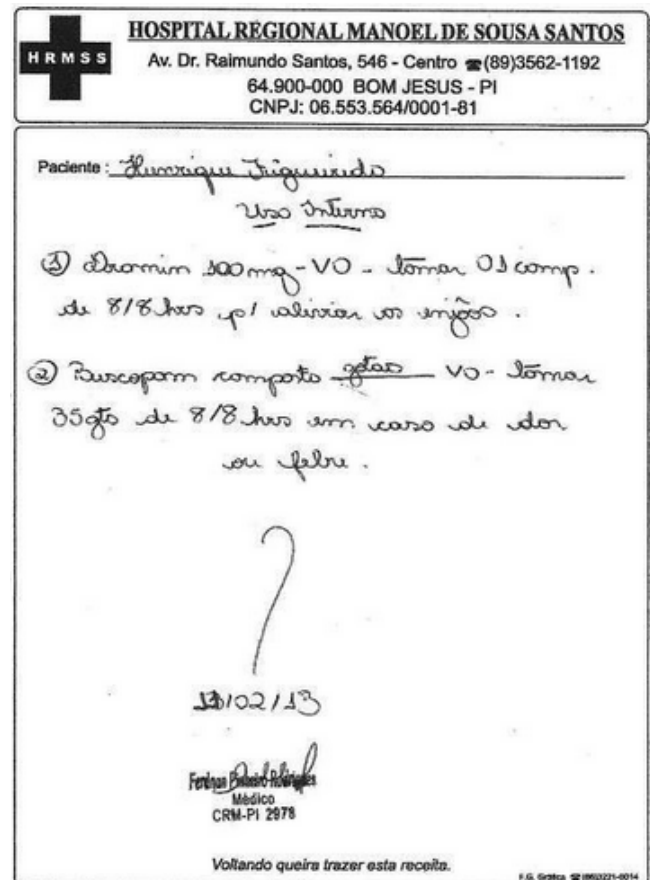 HRMSS
HOSPITAL REGIONAL MANOEL DE SOUSA SANTOS
Av. Dr. Raimundo Santos, 546 - Centro ☎(89)3562-1192
64.900-000 BOM JESUS - PI
CNPJ: 06.553.564/0001-81
Paciente: Hunrique Figueiredo
Uso Interno
① Dromin 100mg - VO - tomar 01 comp.
de 8/8 hrs p/ aliviar os enjôos.
② Buscopam composto gotas VO - tomar
35 gts de 8/8 hrs em caso de dor
ou febre.
/02/13
Médico
CRM-PI 2978
Voltando queira trazer esta receita.
F.G. Gráfica ☎